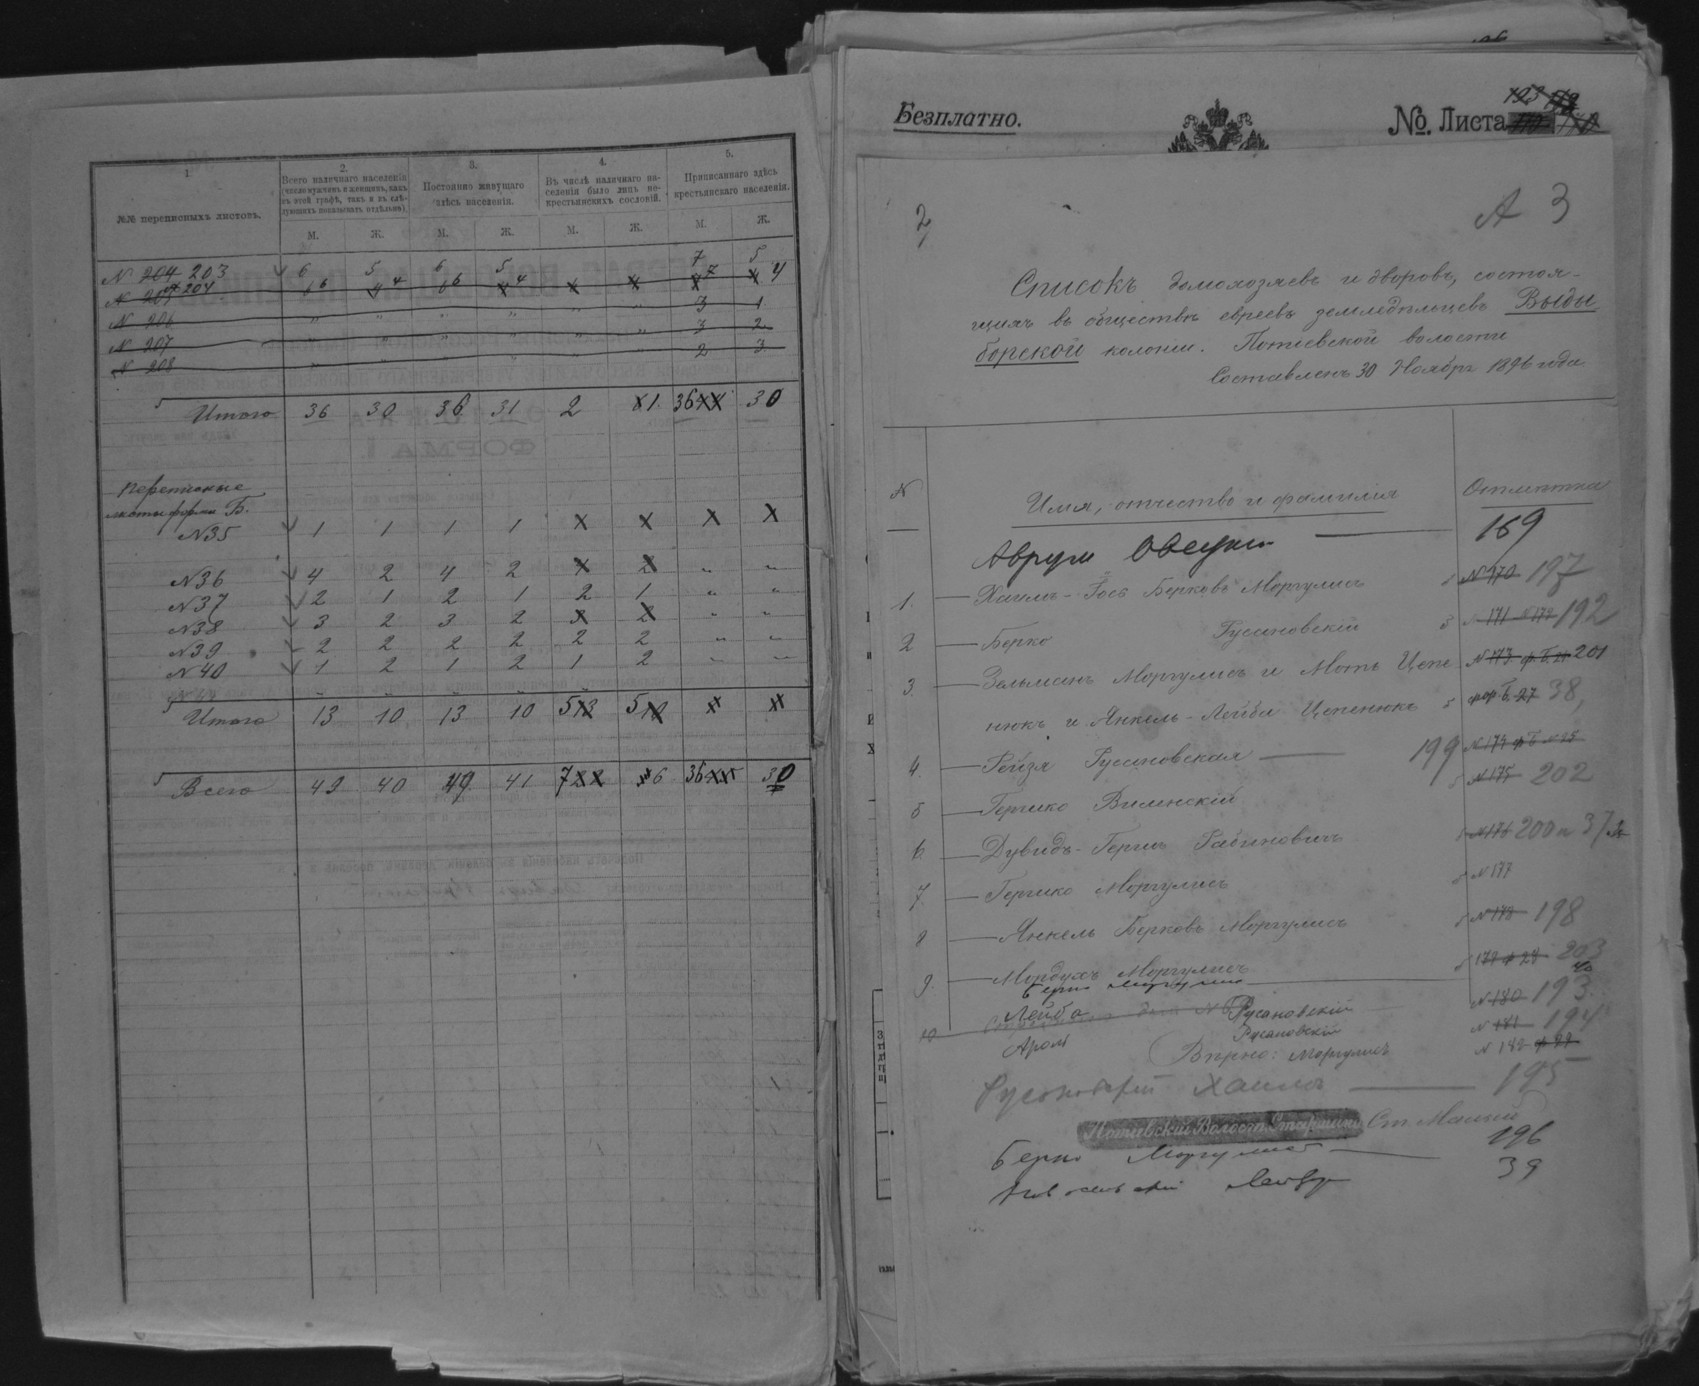 1.
№№ переписныхъ листовъ.
2.
Всего наличнаго населенія
(число мужчинъ и женщинъ, какъ
въ этой графѣ, такъ и въ слѣ-
дующихъ показывать отдѣльно).
3.
Постоянно живущаго
здѣсь населенія.
4.
Въ числѣ наличнаго на-
селенія было лицъ не-
крестьянскихъ сословій.
5.
Приписаннаго здѣсь
крестьянскаго населенія.
М. Ж. М. Ж. М. Ж. М. Ж.
N 204 203 6 5 6 5 7 5
N 205 204 6 4 6 4 x x 7 4
N 206 " " " " " " 3 1
N 207 " " " " " 3 2
N 208 " " " " 2 3
Итого 36 30 36 31 2 1 36 30
Переписные
листы формы Б.
N35 1 1 1 1 x x x x
N36 4 2 4 2 x 2 " "
N37 2 1 2 1 2 1 " "
N38 3 2 3 2 3 2 " "
N39 2 2 2 2 2 2 " "
N40 1 2 1 2 1 2 " "
Итого 13 10 13 10 5 5 x x
Всего 49 40 49 41 7 6 36 30
Безплатно.
№. Листа
2
А 3
Списокъ домохозяевъ и дворовъ, состоя-
щихъ въ обществѣ евреевъ земледѣльцевъ Выды
борской колоніи. Потіевской волости
Составленъ 30 Ноября 1896 года
N Имя, отчество и фамилія Отмѣтка
Аврум Овсей 169
1. Хаимъ-Іось Берковъ Моргулисъ N 170 197
2 Берко Гусиновскій 3 N 171 N 172 192
3. Зельманъ Моргулисъ и Мотъ Цепе N 173 ф. Б. 201
нюкъ и Янкель-Лейба Цепенюкъ 5 фор. Б. 27 38,
4. Рейзя Гусиновская 199 N 174 ф Б N 25
5 Гершко Виленскій N 175 202
6. Дувидъ-Гершъ Рабиновичъ N 176 200 и 37
7. Гершко Моргулисъ N 177
8 Янкель Берковъ Моргулисъ N 178 198
9. Мордухъ Моргулисъ 179 ф 28 203
Берко Моргулис 40
10 Лейба Русановскій N 180 193
Аронъ Русановскій N 181 194
Вѣрно: Моргулисъ N 182
Русановскій Хаимъ 195
Потіевскій Волостн. Старшина
Берко Моргулис 196
Лейзер 39